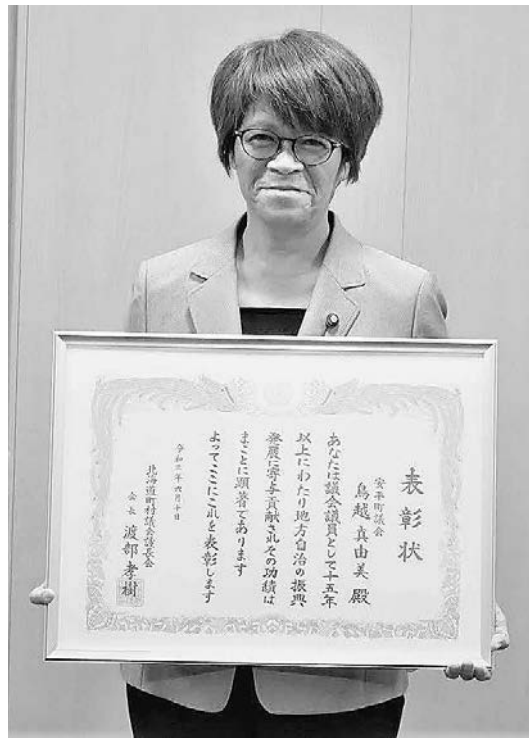 表彰状
安平町議会
鳥越真由美殿
あなたは議会議員として十五年
以上にわたり地方自治の振興
発展に寄与貢献されその功績は
まことに顕著であります
よってここにこれを表彰します
令和三年六月十日
北海道町村議会議長会
会長 渡部孝樹